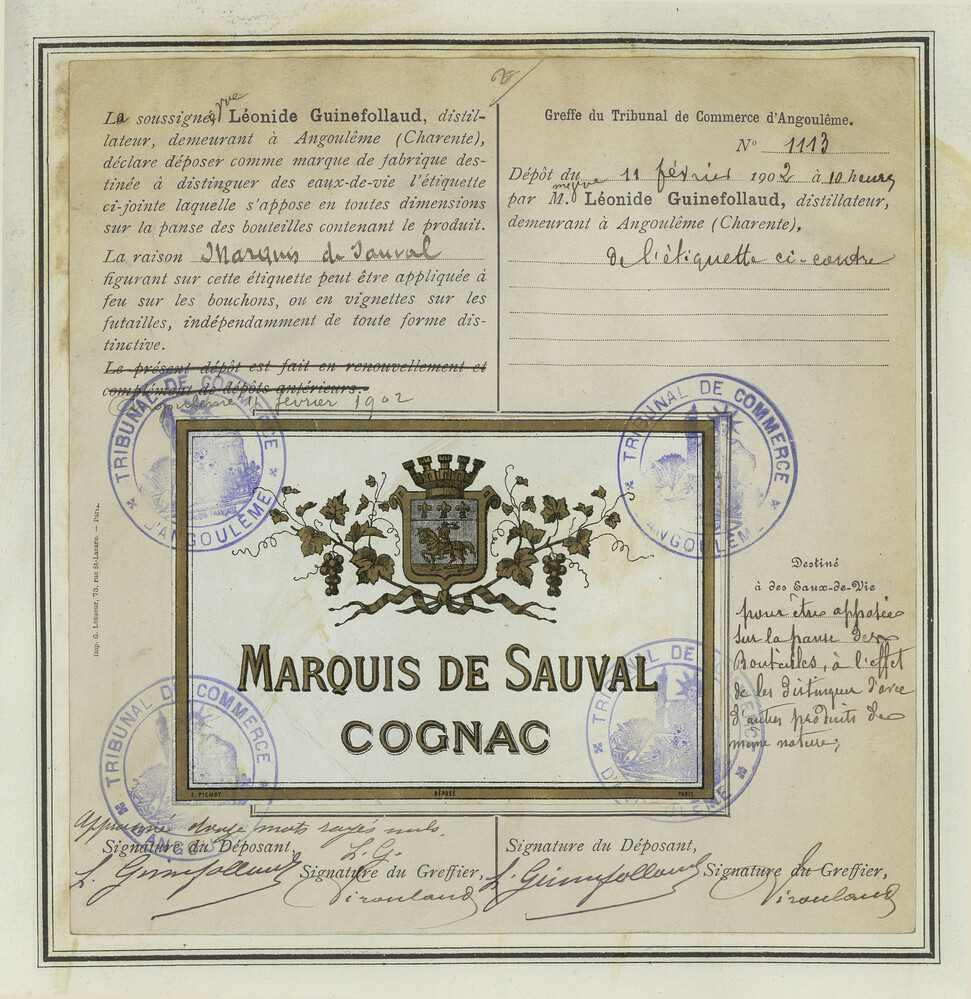 La soussignée, vve Léonide Guinefollaud, distil-
lateur, demeurant à Angoulême (Charente),
déclare déposer comme marque de fabrique des-
tinée à distinguer des eaux-de-vie l'étiquette
ci-jointe laquelle s'appose en toutes dimensions
sur la panse des bouteilles contenant le produit.
La raison Marquis de Sauval
figurant sur cette étiquette peut être appliquée à
feu sur les bouchons, ou en vignettes sur les
futailles, indépendamment de toute forme dis-
tinctive.
Le présent dépôt est fait en renouvellement et
complément de dépôts antérieurs.
Angoulême 11 février 1902
Greffe du Tribunal de Commerce d'Angoulême.
No 1113
Dépôt du 11 février 1902 à 10 heures
par Mme vve Léonide Guinefollaud, distillateur,
demeurant à Angoulême (Charente),
de l'étiquette ci-contre
TRIBUNAL DE COMMERCE D'ANGOULÊME
TRIBUNAL DE COMMERCE D'ANGOULÊME
MARQUIS DE SAUVAL
COGNAC
E. PICHOT DÉPOSÉ PARIS
TRIBUNAL DE COMMERCE D'ANGOULÊME
TRIBUNAL DE COMMERCE D'ANGOULÊME
Imp. G. Lesueur, 73, rue St-Lazare. — Paris.
Destiné
à des Eaux-de-Vie
pour être apposée
sur la panse des
Bouteilles, à l'effet
de les distinguer d'avec
d'autres produits de
même nature;
Approuvé douze mots rayés nuls.
L. G.
Signature du Déposant,
L. Guinefollaud
Signature du Greffier,
Signature du Déposant,
L. Guinefollaud
Signature du Greffier,